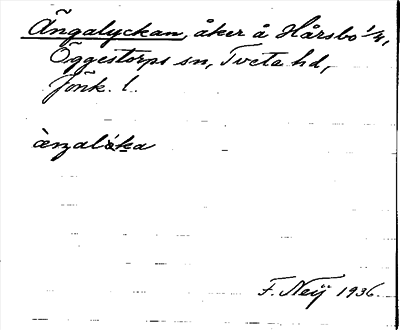 Ängalyckan, åker å Hårsbo 1/4,
Öggestorps sn, Tveta hd,
Jönk. l.
F. Neij 1936.